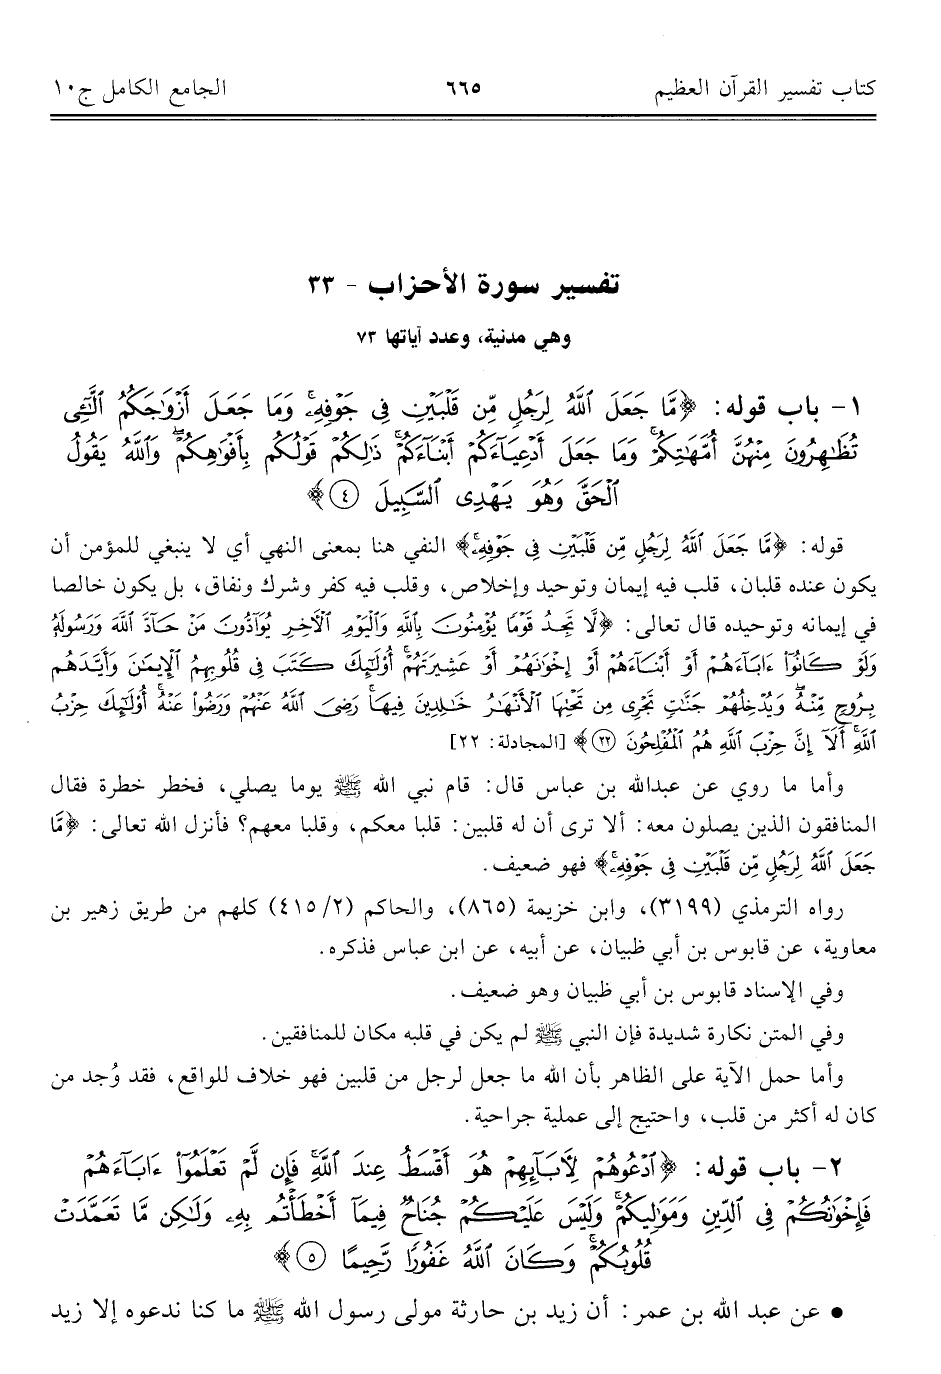 كتاب تفسير القرآن العظيم ٦٦٥ الجامع الكامل ج١٠
تفسير سورة الأحزاب - ٣٣
وهي مدنية، وعدد آياتها ٧٣
١- باب قوله: ﴿مَّا جَعَلَ ٱللَّهُ لِرَجُلٖ مِّن قَلۡبَيۡنِ فِي جَوۡفِهِۦۚ وَمَا جَعَلَ أَزۡوَٰجَكُمُ ٱلَّٰٓـِٔي
تُظَٰهِرُونَ مِنۡهُنَّ أُمَّهَٰتِكُمۡۚ وَمَا جَعَلَ أَدۡعِيَآءَكُمۡ أَبۡنَآءَكُمۡۚ ذَٰلِكُمۡ قَوۡلُكُم بِأَفۡوَٰهِكُمۡۖ وَٱللَّهُ يَقُولُ
ٱلۡحَقَّ وَهُوَ يَهۡدِي ٱلسَّبِيلَ ٤﴾
قوله: ﴿مَّا جَعَلَ ٱللَّهُ لِرَجُلٖ مِّن قَلۡبَيۡنِ فِي جَوۡفِهِۦۚ﴾ النفي هنا بمعنى النهي أي لا ينبغي للمؤمن أن
يكون عنده قلبان، قلب فيه إيمان وتوحيد وإخلاص، وقلب فيه كفر وشرك ونفاق، بل يكون خالصا
في إيمانه وتوحيده قال تعالى: ﴿لَّا تَجِدُ قَوۡمٗا يُؤۡمِنُونَ بِٱللَّهِ وَٱلۡيَوۡمِ ٱلۡأٓخِرِ يُوَآدُّونَ مَنۡ حَآدَّ ٱللَّهَ وَرَسُولَهُۥ
وَلَوۡ كَانُوٓاْ ءَابَآءَهُمۡ أَوۡ أَبۡنَآءَهُمۡ أَوۡ إِخۡوَٰنَهُمۡ أَوۡ عَشِيرَتَهُمۡۚ أُوْلَٰٓئِكَ كَتَبَ فِي قُلُوبِهِمُ ٱلۡإِيمَٰنَ وَأَيَّدَهُم
بِرُوحٖ مِّنۡهُۖ وَيُدۡخِلُهُمۡ جَنَّٰتٖ تَجۡرِي مِن تَحۡتِهَا ٱلۡأَنۡهَٰرُ خَٰلِدِينَ فِيهَاۚ رَضِيَ ٱللَّهُ عَنۡهُمۡ وَرَضُواْ عَنۡهُۚ أُوْلَٰٓئِكَ حِزۡبُ
ٱللَّهِۚ أَلَآ إِنَّ حِزۡبَ ٱللَّهِ هُمُ ٱلۡمُفۡلِحُونَ ٢٢﴾ [المجادلة: ٢٢]
وأما ما روي عن عبدالله بن عباس قال: قام نبي الله ﷺ يوما يصلي، فخطر خطرة فقال
المنافقون الذين يصلون معه: ألا ترى أن له قلبين: قلبا معكم، وقلبا معهم؟ فأنزل الله تعالى: ﴿مَّا
جَعَلَ ٱللَّهُ لِرَجُلٖ مِّن قَلۡبَيۡنِ فِي جَوۡفِهِۦۚ﴾ فهو ضعيف.
رواه الترمذي (٣١٩٩)، وابن خزيمة (٨٦٥)، والحاكم (٤١٥/٢) كلهم من طريق زهير بن
معاوية، عن قابوس بن أبي ظبيان، عن أبيه، عن ابن عباس فذكره.
وفي الإسناد قابوس بن أبي ظبيان وهو ضعيف.
وفي المتن نكارة شديدة فإن النبي ﷺ لم يكن في قلبه مكان للمنافقين.
وأما حمل الآية على الظاهر بأن الله ما جعل لرجل من قلبين فهو خلاف للواقع، فقد وُجد من
كان له أكثر من قلب، واحتيج إلى عملية جراحية.
٢- باب قوله: ﴿ٱدۡعُوهُمۡ لِأٓبَآئِهِمۡ هُوَ أَقۡسَطُ عِندَ ٱللَّهِۚ فَإِن لَّمۡ تَعۡلَمُوٓاْ ءَابَآءَهُمۡ
فَإِخۡوَٰنُكُمۡ فِي ٱلدِّينِ وَمَوَٰلِيكُمۡۚ وَلَيۡسَ عَلَيۡكُمۡ جُنَاحٞ فِيمَآ أَخۡطَأۡتُم بِهِۦ وَلَٰكِن مَّا تَعَمَّدَتۡ
قُلُوبُكُمۡۚ وَكَانَ ٱللَّهُ غَفُورٗا رَّحِيمًا ٥﴾
• عن عبد الله بن عمر: أن زيد بن حارثة مولى رسول الله ﷺ ما كنا ندعوه إلا زيد